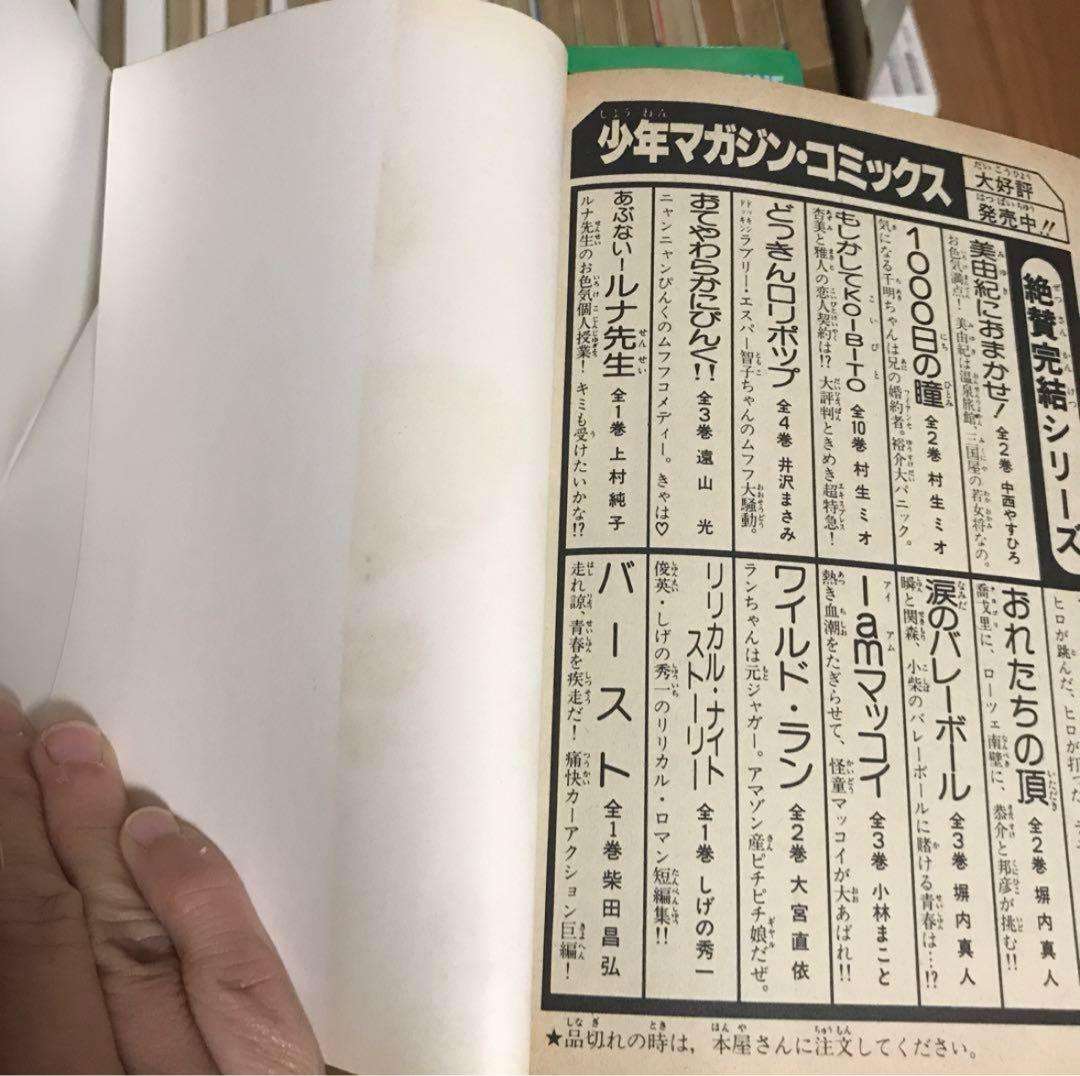 少年マガジン・コミックス
しょうねん
大好評
だいこうひょう
発売中!!
はつばいちゅう
絶賛完結シリーズ
ぜっさんかんけつ
美由紀におまかせ! 全2巻 中西やすひろ
お色気満点! 美由紀は温泉旅館、三国屋の若女将なの。
1000日の瞳 全2巻 村生ミオ
気になる千明ちゃんは兄の婚約者。裕介大パニック。
もしかしてKOIBITO 全10巻 村生ミオ
杏美と雅人の恋人契約は!? 大評判ときめき超特急!
どっきんロリポップ 全4巻 井沢まさみ
ドッキンドッキンラブリー・エスパー智子ちゃんのムフフ大騒動。
おてやわらかにぴんく!! 全3巻 遠山 光
ニャンニャンぴんくのムフフコメディー。きゃは♡
あぶない!ルナ先生 全1巻 上村純子
ルナ先生のお色気個人授業! キミも受けたいかな!?
ヒロが跳んだ、ヒロが打った
おれたちの頂 全2巻 塀内真人
喬戈里に、ローツェ南壁に、恭介と邦彦が挑む!!
涙のバレーボール 全3巻 塀内真人
瞬と関森、小柴のバレーボールに賭ける青春は…!?
I amマッコイ 全3巻 小林まこと
熱き血潮をたぎらせて、怪童マッコイが大あばれ!!
ワイルド・ラン 全2巻 大宮直依
ランちゃんは元ジャガー。アマゾン産ピチピチ娘だぜ。
リリカル・ナイトストーリー 全1巻 しげの秀一
俊英・しげの秀一のリリカル・ロマン短編集!!
バースト 全1巻 柴田昌弘
走れ諒、青春を疾走だ! 痛快カーアクション巨編!
★品切れの時は，本屋さんに注文してください。